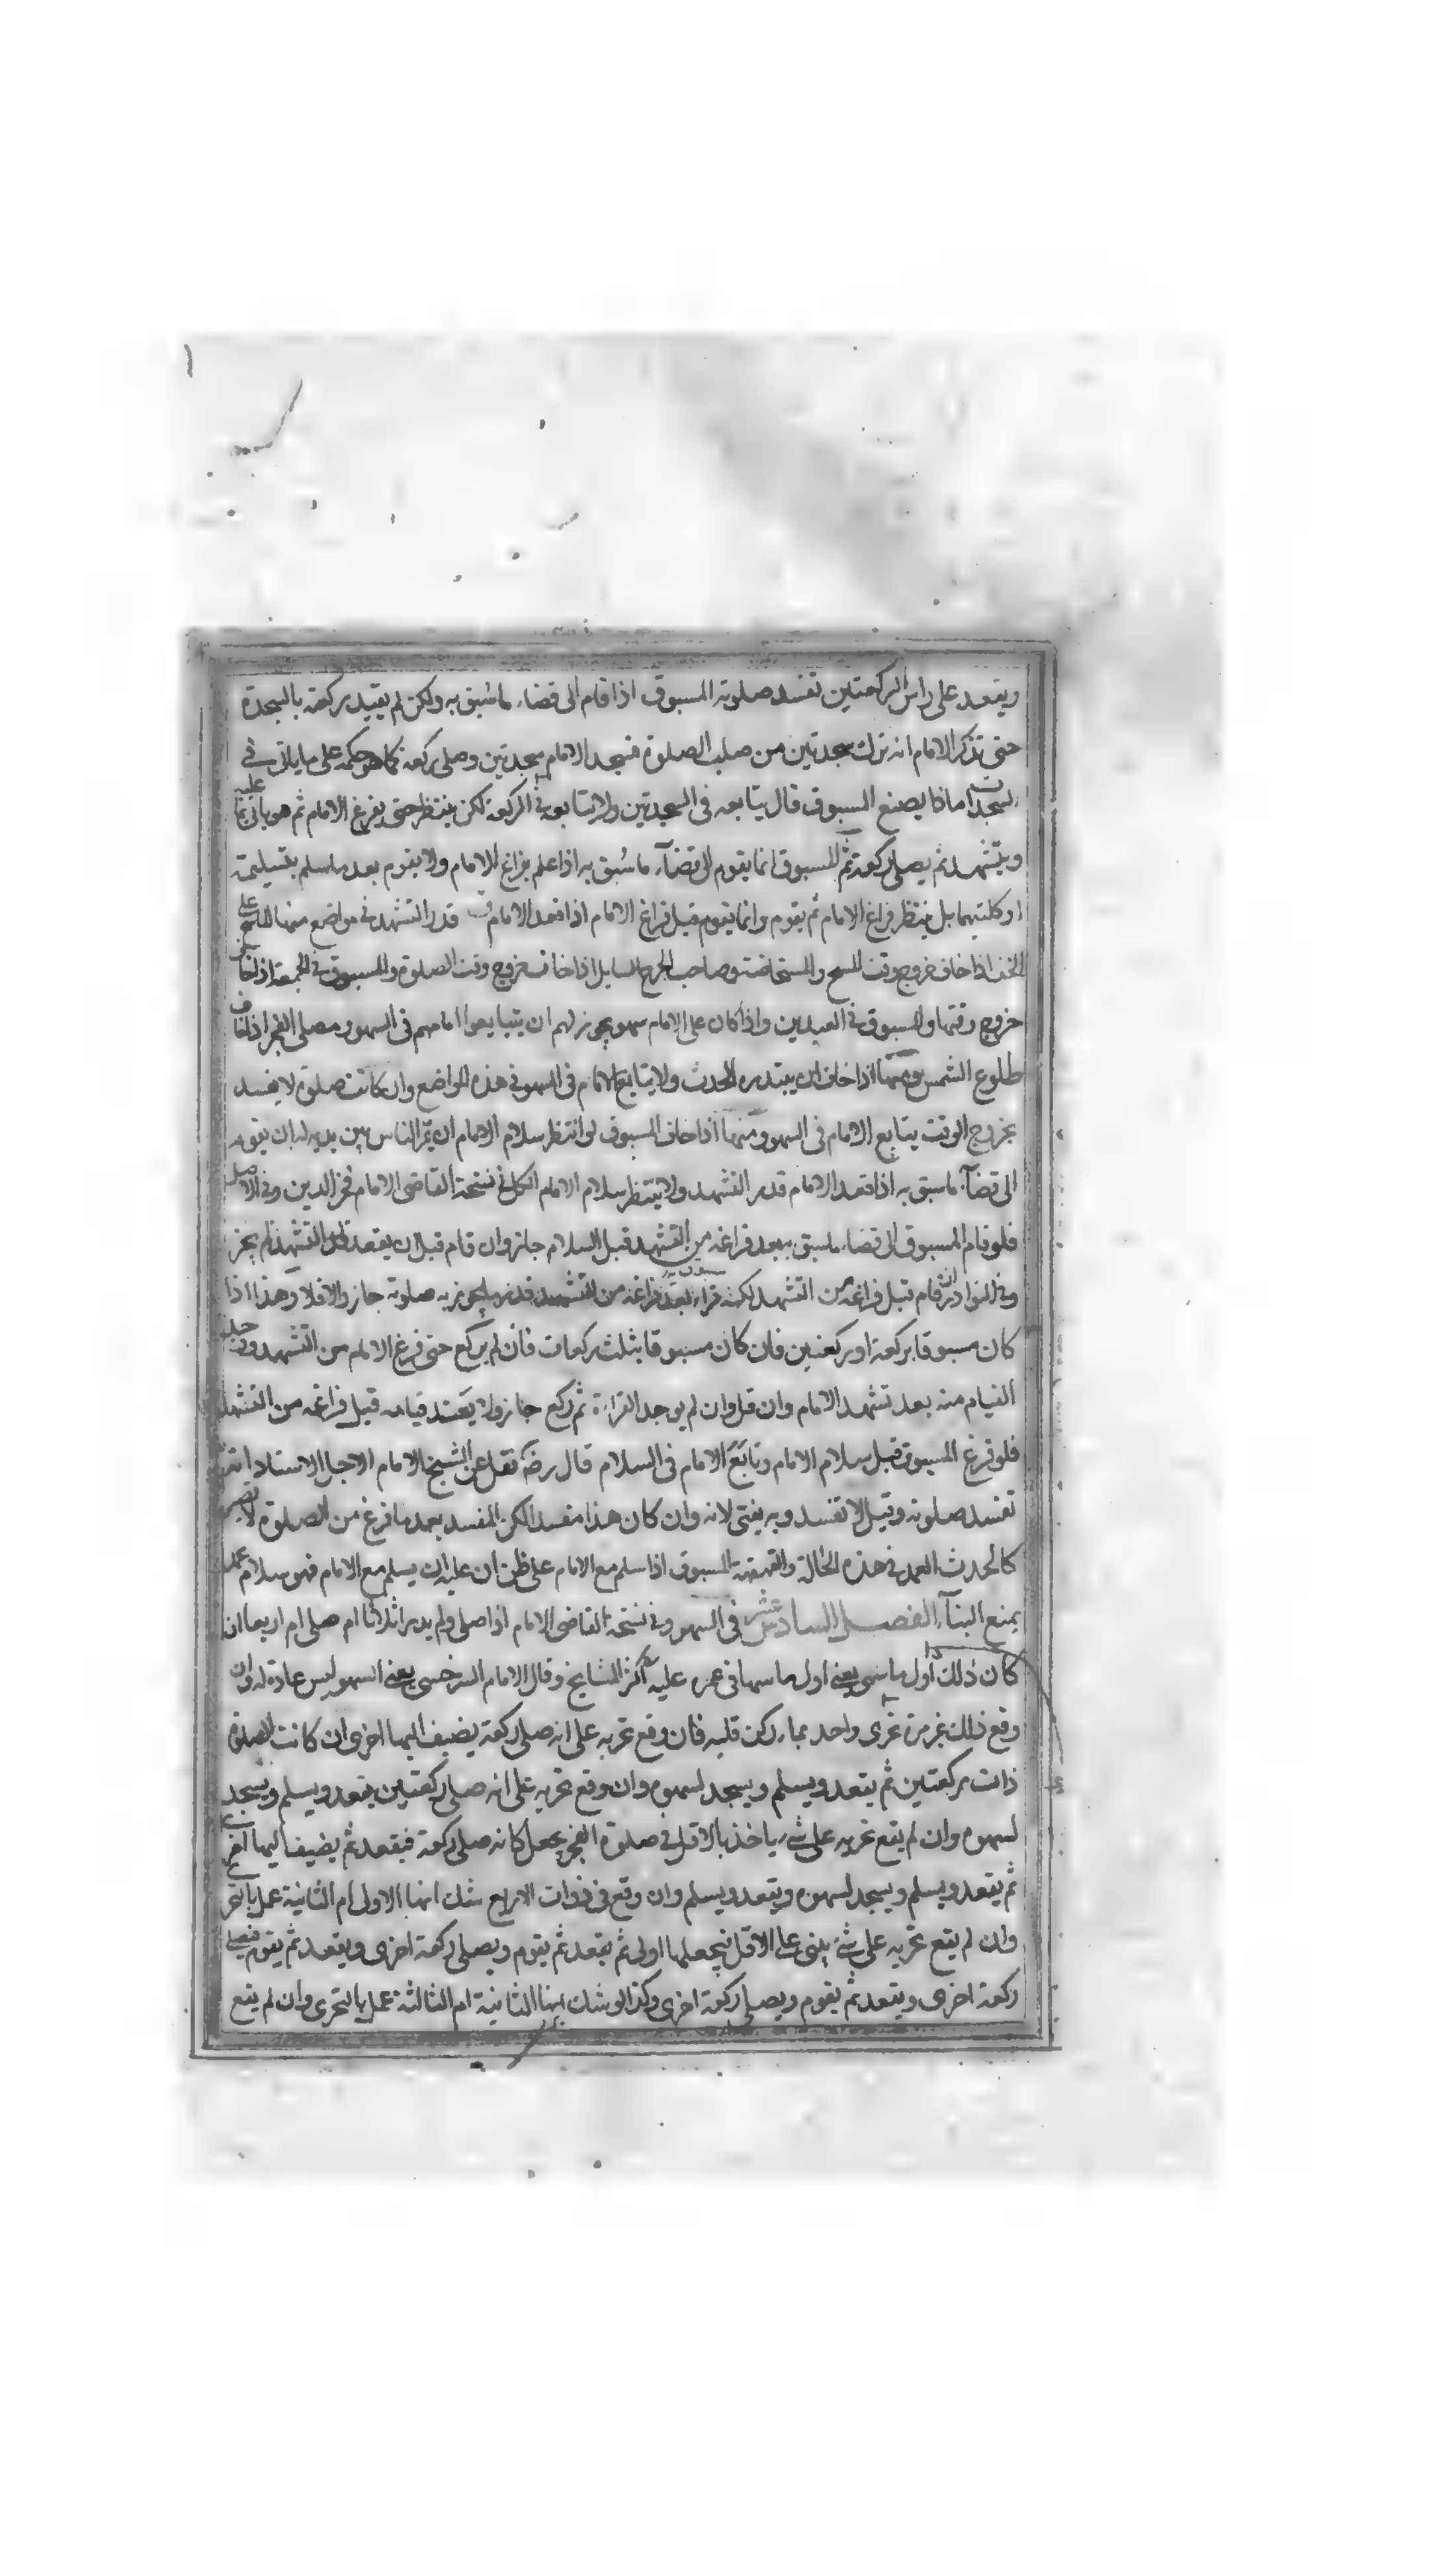 ويقعد على راس الركعتين تفسد صلوته المسبوق اذا قام الى قضاء ما سُبق به ولكن لم يقيد ركعة بالسجدة
حتى تذكر الامام انه ترك سجدتين من صلب الصلوة فسجد الامام سجدتين وصلى ركعة كما هو حكمه على ما ياتى فى
ماذا يصنع المسبوق قال يتابعه فى السجدتين ولا يتابعه فى الركعة لكن ينتظر حتى يفرغ الامام ثم هو ياتى بما عليه
ويتشهد ثم يصلى ركعة ثم المسبوق انما يقوم الى قضآء ما سُبق به اذا علم بفراغ الامام ولا يقوم بعد ما سلم بتسليمة
او كلتيهما بل ينتظر فراغ الامام ثم يقوم وانما يقوم قبل فراغ الامام اذا قعد الامام قدر التشهد فى مواضع منها الماسح على
الخف اذا خاف خروج وقت المسح والمستحاضة وصاحب الجرح السايل اذا خاف خروج وقت الصلوة والمسبوق فى الجمعة اذا خاف
خروج وقتها والمسبوق فى العيدين واذا كان على الامام سهو يجوز لهم ان يتابعوا امامهم فى السهو ومصلى الفجر اذا خاف
طلوع الشمس ومنها اذا خاف ان يبتدره الحدث ولا يتابع الامام فى السهو فى هذه المواضع وان كانت صلوة لا يفسد
بخروج الوقت يتابع الامام فى السهو ومنها اذا خاف المسبوق لو انتظر سلام الامام ان يمر الناس بين يديه له ان يقوم
الى قضآء ما سبق به اذا قعد الامام قدر التشهد ولا ينتظر سلام الامام الكل فى نسخة القاضى الامام فخر الدين وفى الاصل
فلو قام المسبوق الى قضاء ما سبق به بعد فراغه من التشهد قبل السلام جاز وان قام قبل ان يقعد قدر التشهد لم يجز
وفى النوادر ان قام قبل فراغه من التشهد لكنه قراء بعد فراغه من التشهد قدر ما يجوز به صلوته جاز والا فلا وهذا اذا
كان مسبوقا بركعة او ركعتين فان كان مسبوقا بثلث ركعات فان لم يركع حتى فرغ الامام من التشهد ووجد
القيام منه بعد تشهد الامام وان قل وان لم يوجد القراءة ثم ركع جاز ولا يعتد قيامه قبل فراغه من التشهد
فلو فرغ المسبوق قبل سلام الامام وتابَعَ الامام فى السلام قال رضه نقل عن الشيخ الامام الاجل الاستاد انه
تفسد صلوته وقيل لا تفسد وبه يفتى لانه وان كان هذا مفسدا لكن المفسد بعد ما فرغ من الصلوة لا يضره
كالحدث العمد فى هذه الحالة والقهقهة المسبوق اذا سلم مع الامام على ظن ان عليه ان يسلم مع الامام فهو سلام عمد
يمنع البنآء الفصل السادس عشر فى السهو وفى نسخة القاضى الامام اذا صلى ولم يدر اثلاثا ام صلى ام اربعا ان
كان ذلك اول ما سهى يعنى اول ما سها فى عمره عليه اكثر المشايخ وقال الامام السرخسى يعنى السهو ليس عادة له وان
وقع ذلك غير مرة تحرى واخذ بما ركن قلبه فان وقع تحريه على انه صلى ركعة يضيف اليها اخرى ان كانت الصلوة
ذات ركعتين ثم يقعد ويسلم ويسجد لسهوه وان وقع تحريه على انه صلى ركعتين يقعد ويسلم ويسجد
لسهوه وان لم يقع تحريه على شئ ياخذ بالاقل فى صلوة الفجر يجعل كانه صلى ركعة فيقعد ثم يضيف اليها اخرى
ثم يقعد ويسلم ويسجد لسهوه ويقعد ويسلم وان وقع فى ذوات الاربع شك انها الاولى ام الثانية عمل بالتحرى
وان لم يقع تحريه على شئ يبنى على الاقل فيجعلها اولى ثم يقعد ثم يقوم ويصلى ركعة اخرى ويقعد ثم يقوم فيصلى
ركعة اخرى ويقعد ثم يقوم ويصلى ركعة اخرى وكذا لو شك انها الثانية ام الثالثة عمل بالتحرى وان لم يقع